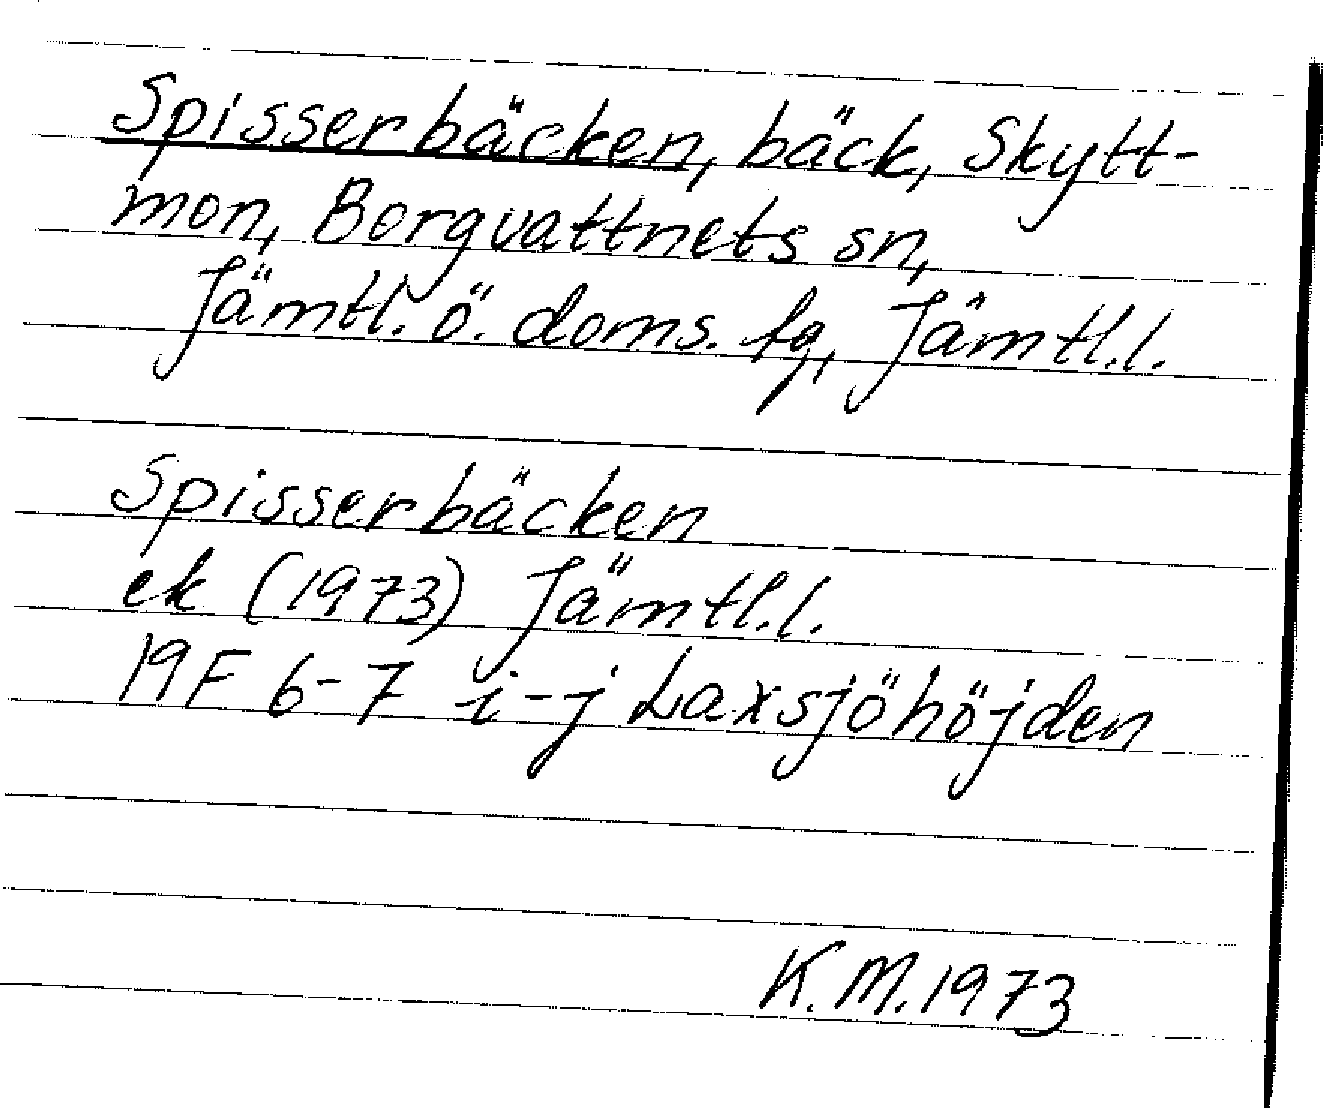 Spisserbäcken, bäck, Skytt-
mon, Borgvattnets sn,
Jämtl. ö. doms. fg, Jämtl.l.
Spisserbäcken
ek (1973) Jämtl.l.
19F 6-7 i-j Laxsjöhöjden
K.M.1973